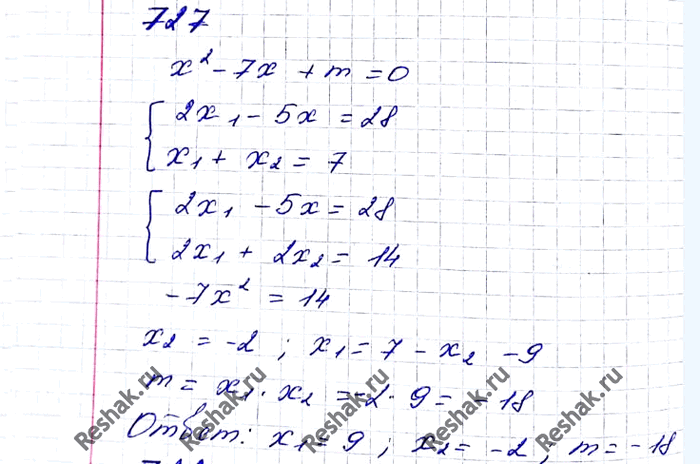 727
x² - 7x + m = 0
2x₁ - 5x = 28
x₁ + x₂ = 7
2x₁ - 5x = 28
2x₁ + 2x₂ = 14
-7x² = 14
x₂ = -2 ; x₁ = 7 - x₂ - 9
m = x₁ · x₂ = -2 · 9 = -18
Ответ: x₁ = 9 ; x₂ = -2, m = -18
Reshak.ru Reshak.ru Reshak.ru Reshak.ru Reshak.ru